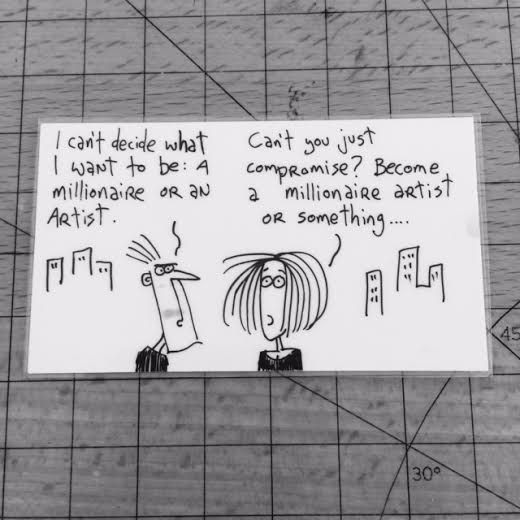 I can't decide what
I want to be: A
millionaire OR AN
ARTIST.
Can't you just
compromise? Become
a millionaire artist
or something....
45
30°